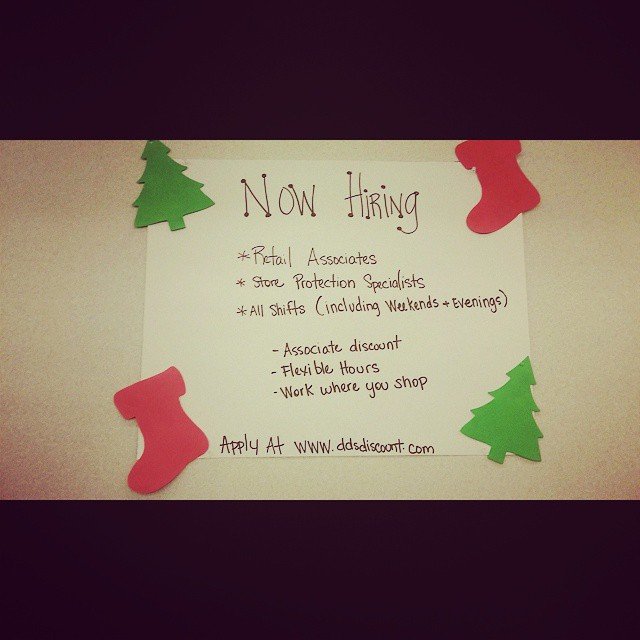 Now Hiring
* Retail Associates
* Store Protection Specialists
* All Shifts (including Weekends + Evenings)
- Associate discount
- Flexible Hours
- Work where you shop
Apply At www.ddsdiscount.com